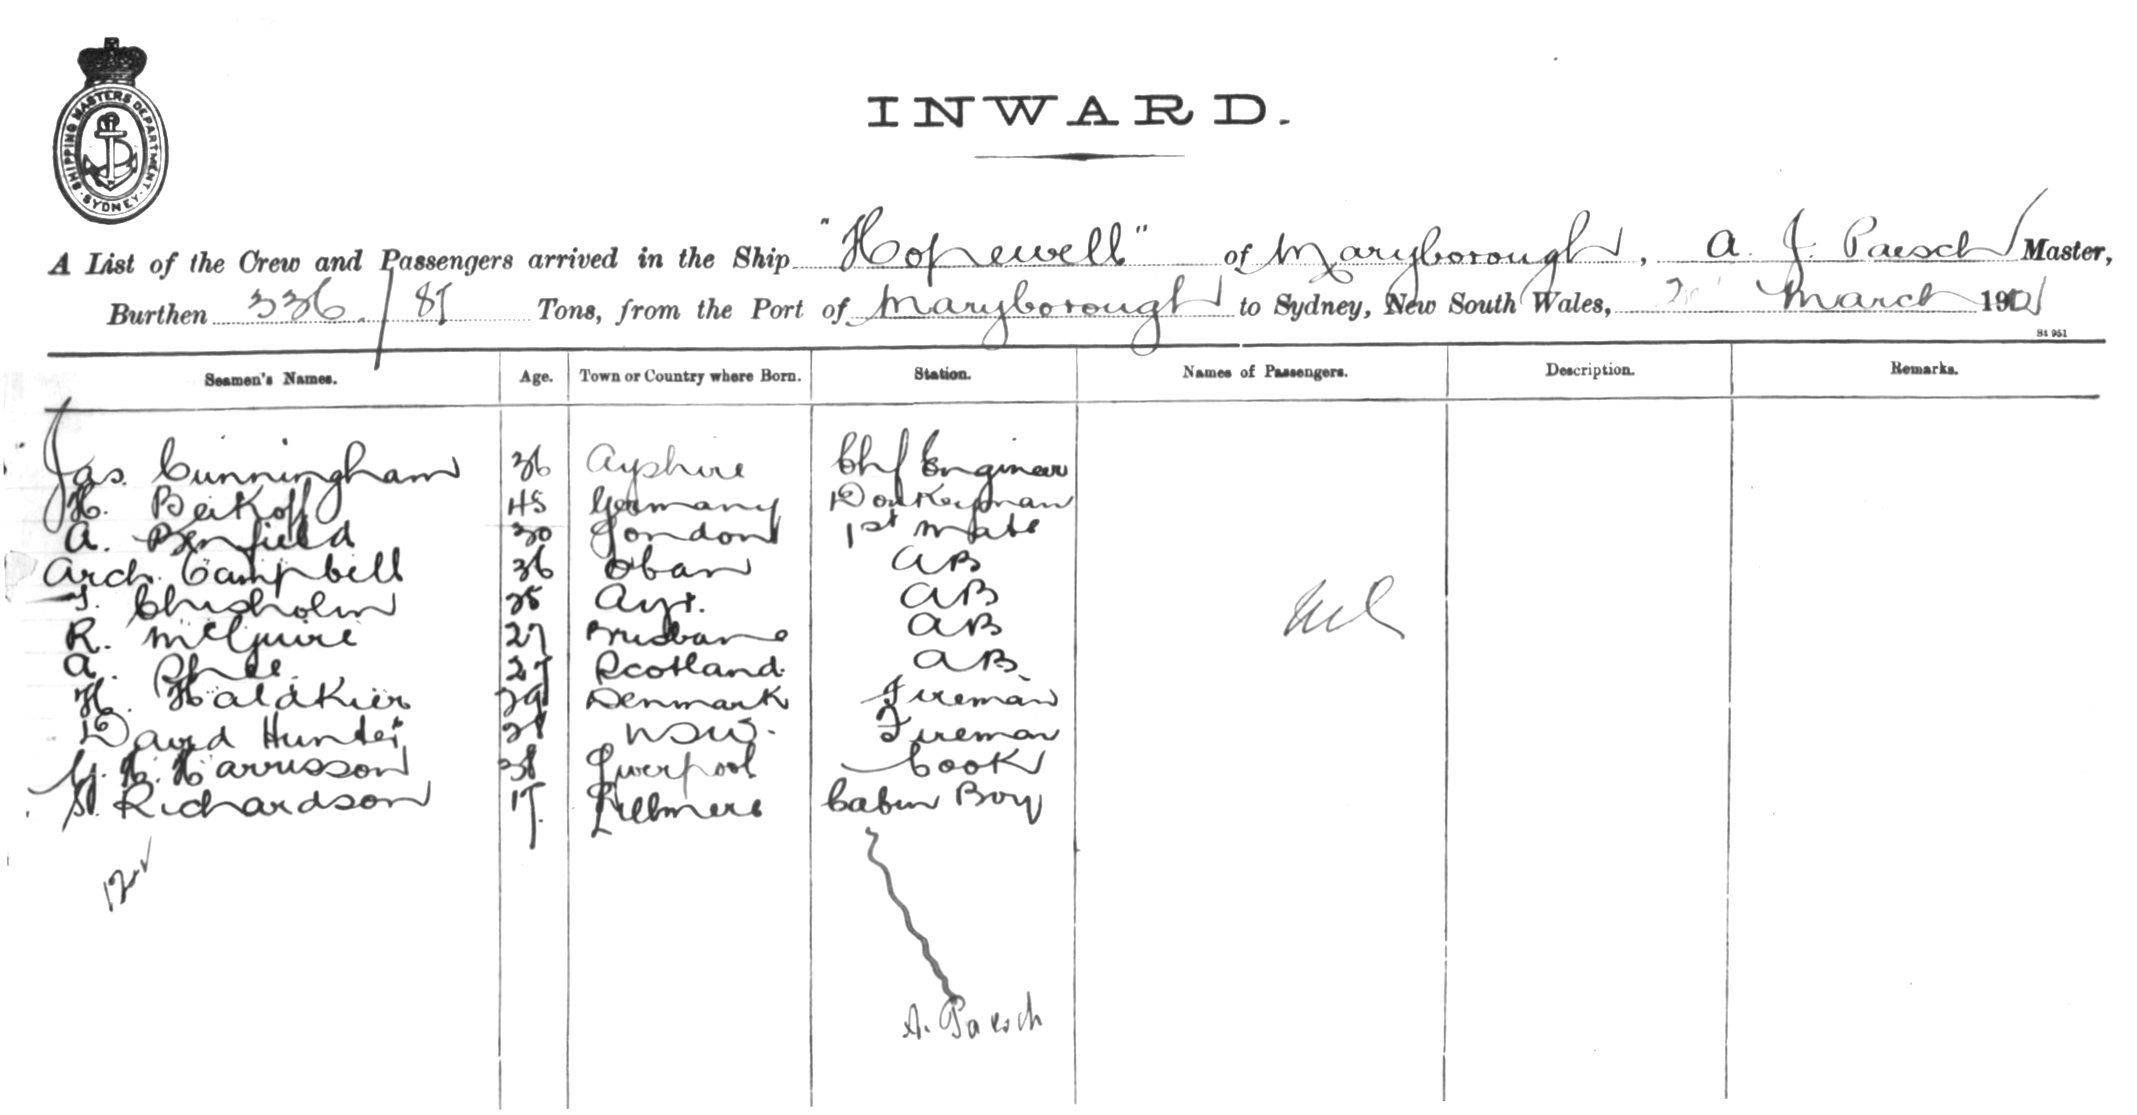 SHIPPING MASTERS DEPARTMENT
SYDNEY
INWARD.
A List of the Crew and Passengers arrived in the Ship "Hopewell" of Maryborough, A. J. Paesch Master,
Burthen 336 / 81 Tons, from the Port of Maryborough to Sydney, New South Wales, March 190
St 951
Seamen's Names. Age. Town or Country where Born. Station. Names of Passengers. Description. Remarks.
Jas. Cunningham 36 Ayshire Chf Engineer
H. Beikoff 45 Germany Donkeyman
A. Benfield 30 London 1st Mate
Arch. Campbell 36 Oban AB
Chisholm 25 Ayr. AB
Nil
R. McGuire 27 Brisbane AB
A. Phee. 27 Scotland. AB
H. Haldkier 29 Denmark Fireman
David Hunter NSW. Fireman
G. H. Harrisson 38 Liverpool Cook
Richardson 17. Cabin Boy
12
A. Paesch